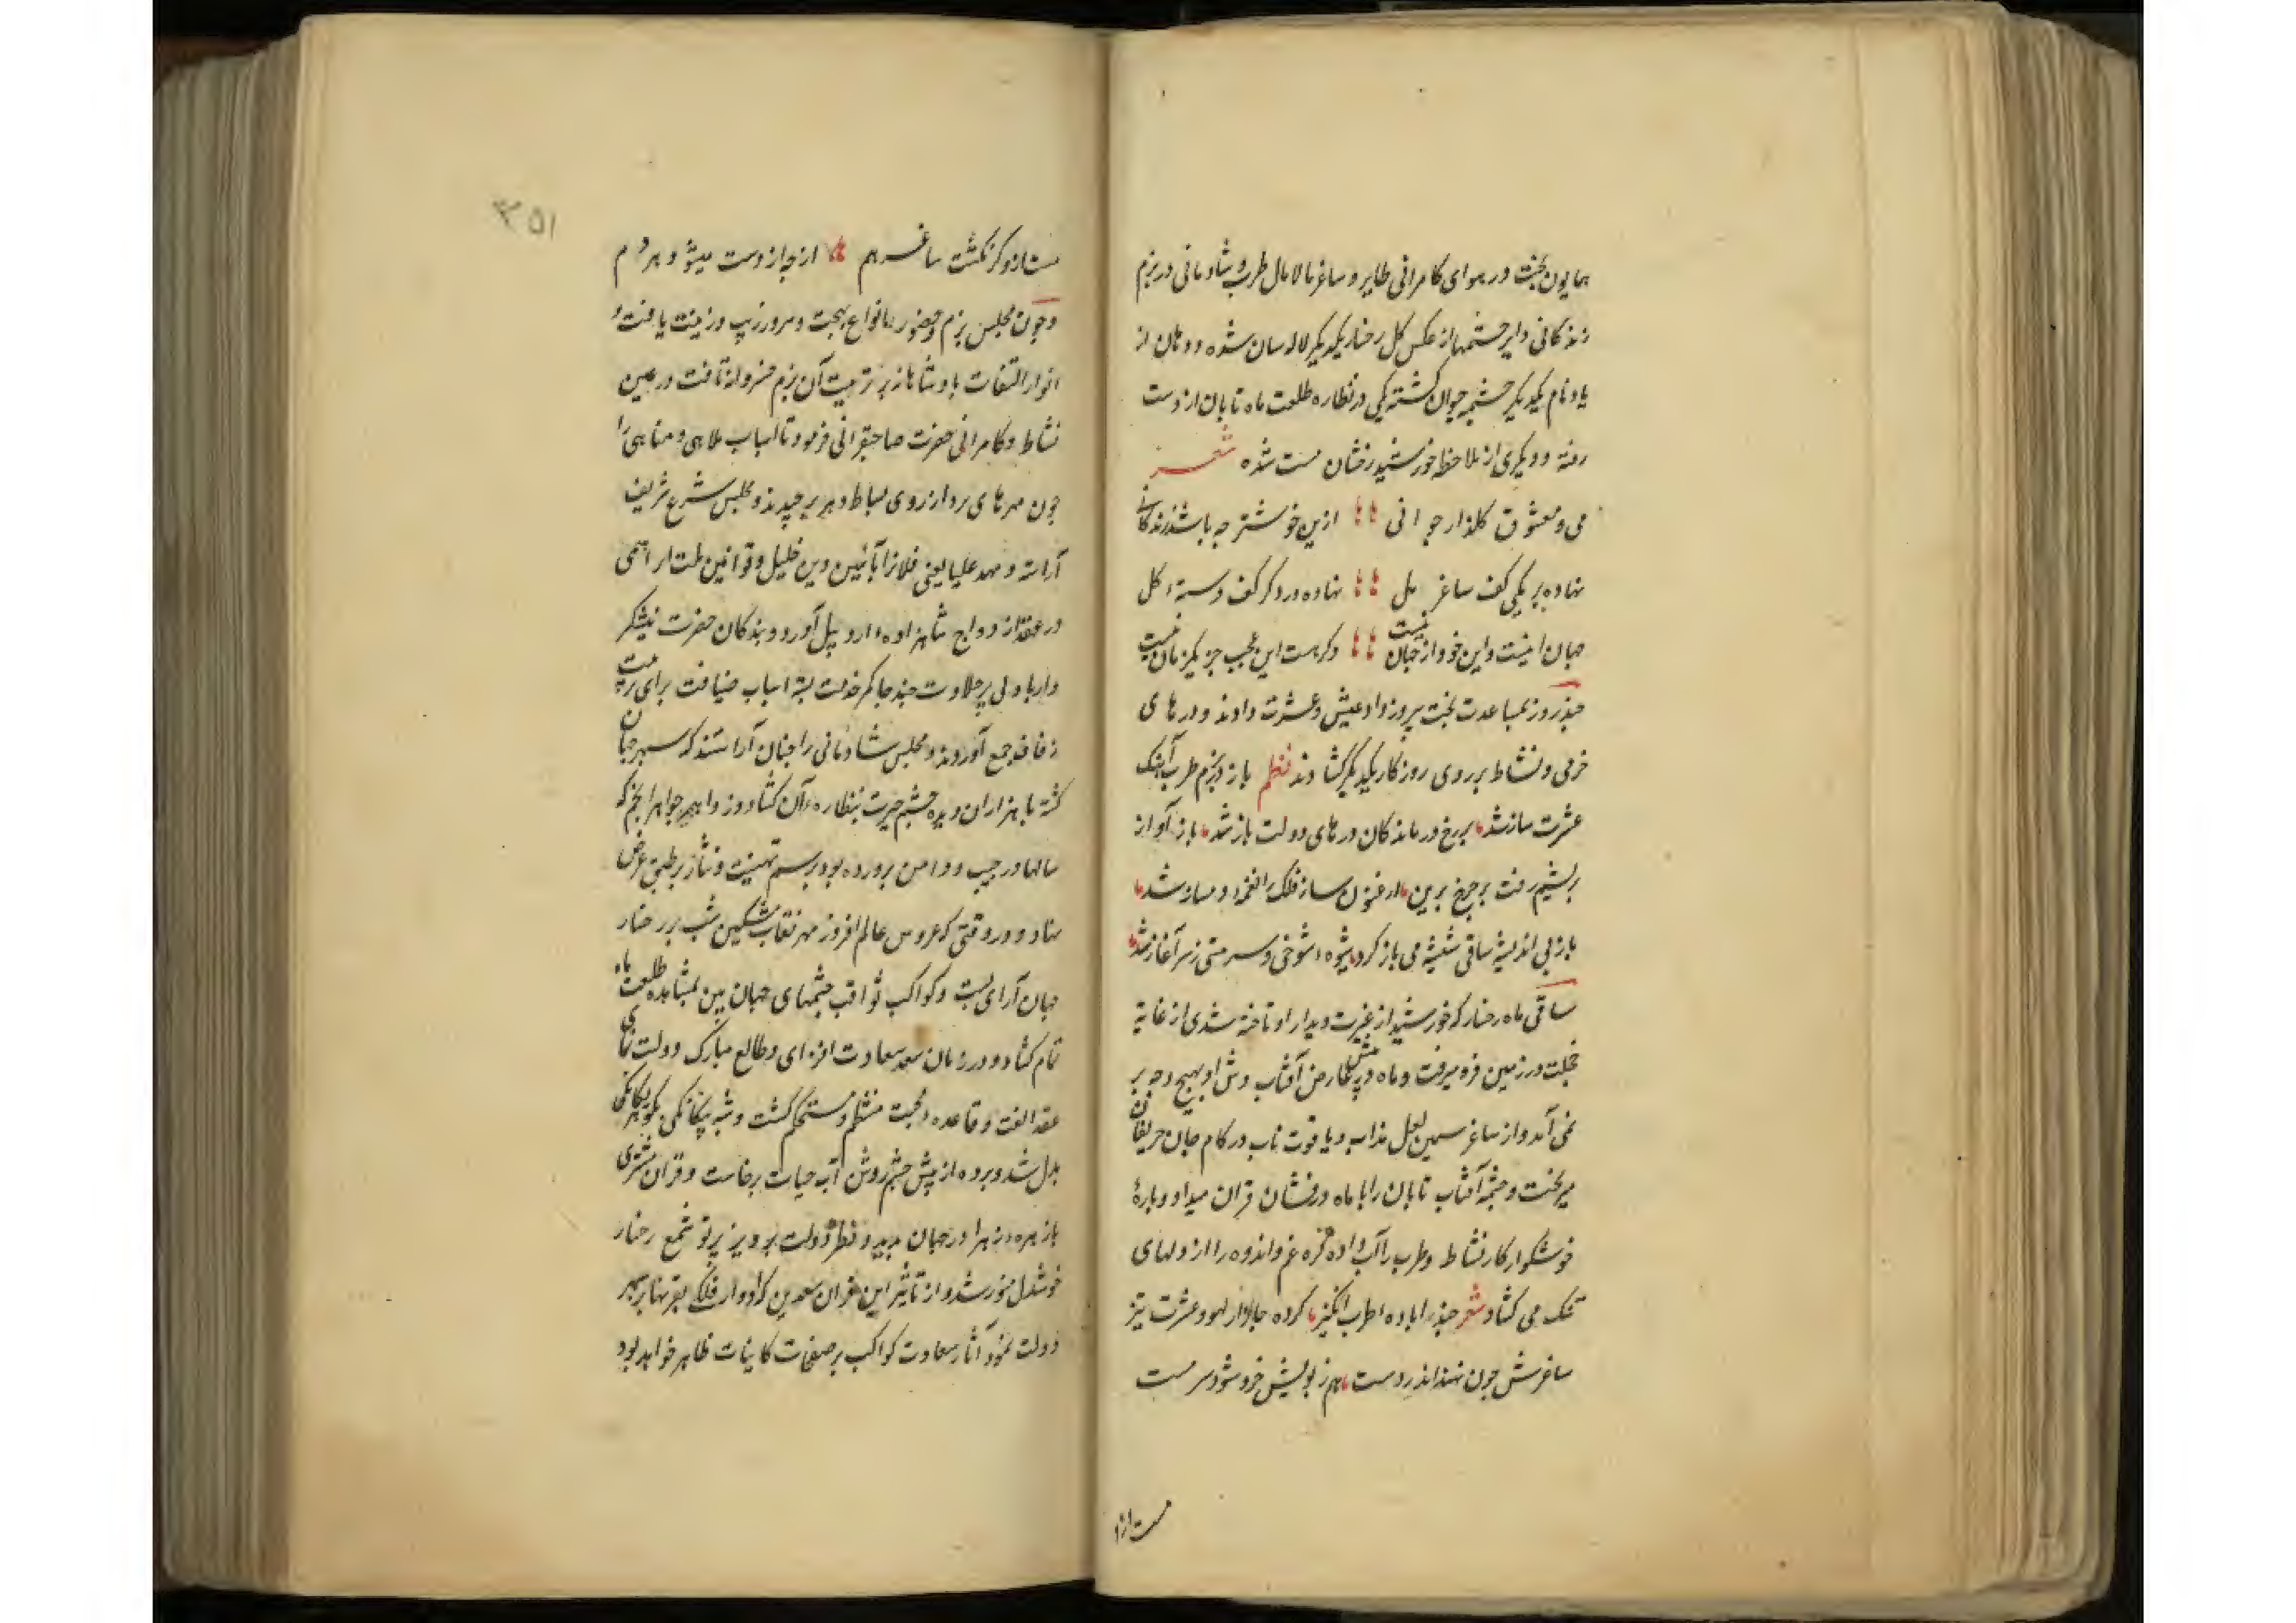 همایون بخت در هوای کامرانی طایر و ساغر مالامال طرب و شادمانی در بزم
زندکانی دایر چشمها از عکس کل رخسار یکدیکر لاله سان شده و دهان از
یاد نام یکدیکر چشمه حیوان کشته یکی در نظاره طلعت ماه تابان از دست
رفته و دیکری از ملاحظه خورشید رخشان مست شده شعر
می و معشوق و کلزار جوانی ازین خوشتر چه باشد زندکانی
نهاده بر یکی کف ساغر مل نهاده در دکر کف دسته کل
جهان اینست و این خود از جهان نیست وکر هست این عجب جز یکزمان نیست
چند روز بمساعدت بخت پیروز داد عیش و عشرت دادند و درهای
خرمی و نشاط بر روی روزکار یکدیکر کشادند نظم باز در بزم طرب آهنک
عشرت ساز شد بر رخ درماندکان درهای دولت باز شد باز آواز
بریشم رفت بر چرخ برین ارغنون ساز فلک را نغمها دمساز شد
باز بی اندیشه ساقی شیشه می باز کرد شیوه شوخی و سرمستی ز سر آغاز شد
ساقی ماه رخسار که خورشید از غیرت دیدار او تاخته شدی از غایة
خجلت در زمین فرو میرفت و ماه در پیش عارض آفتاب وش او بهیچ وجه بر
نمی آمد و از ساغر سیمین لعل مذاب و یاقوت ناب در کام جان حریفان
میریخت و چشمه آفتاب تابان را با ماه درفشان قران میداد و بارهٔ
خوشکوار کار نشاط و طرب را آب داده کره غم و اندوه را از دلهای
تنک می کشاد شعر حبذا باده طرب انکیز کرده بازار لهو و عشرت تیز
ساغرش چون نهند اندر دست هم ز بویش خرد شود سرمست
مست ازو
مست ازو کر نکشت ساغر هم از چه از دست میشود هر دم
و چون مجلس بزم و حضور بانواع بهجت و سرور زیب و زینت یافت و
انوار التفات پادشاهانه بر تربیت آن بزم خسروانه تافت در عین
نشاط و کامرانی حضرت صاحبقرانی فرمود تا اسباب ملاهی و مناهی را
چون مهرهای نرد از روی بساط دهر برچیدند و مجلس شرع شریف
آراسته و مهد علیا یعنی فلانرا بآئین دین خلیل و قوانین ملت ابراهیمی
در عقد ازدواج شاهزاده ارد وپل آورد و بندکان حضرت نیشکر
وار با دلی پر حلاوت چند جا کمر خدمت بسته اسباب ضیافت برای ترتیب
زفاف جمع آوردند و مجلس شادمانی را چنان آراستند که سپهر جهان
کشته با هزاران دیده چشم حیرت بنظاره آن کشاد و زواهر جواهر انجم که
سالها در جیب و دامن پرورده بود برسم تهنیت و نثار بر طبق عرض
نهاد و در وقتی که عروس عالم افروز مهر نقاب مشکین شب بر رخسار
جهان آرای بست و کواکب ثواقب چشمهای جهان بین بمشاهده طلعت ماه
تمام کشاد و در زمان سعد سعادت افزای و طالع مبارک دولت نمای
عقد الفت و قاعده محبت منتظم و مستحکم کشت و شبه بیکانکی بکوهر یکانکی
بدل شد و پرده از پیش چشم روشن آب حیات برخاست و قران مشتری
با زهره زهرا در جهان پدید و نظر دولت پرویز پرتو شمع رخسار
خوشدل منور شد و از تأثیر این قران سعدین که ادوار فلک بقرنها بر مهر
دولت نمود آثار سعادت کواکب بر صفحات کاینات ظاهر خواهد بود
۳۵۱